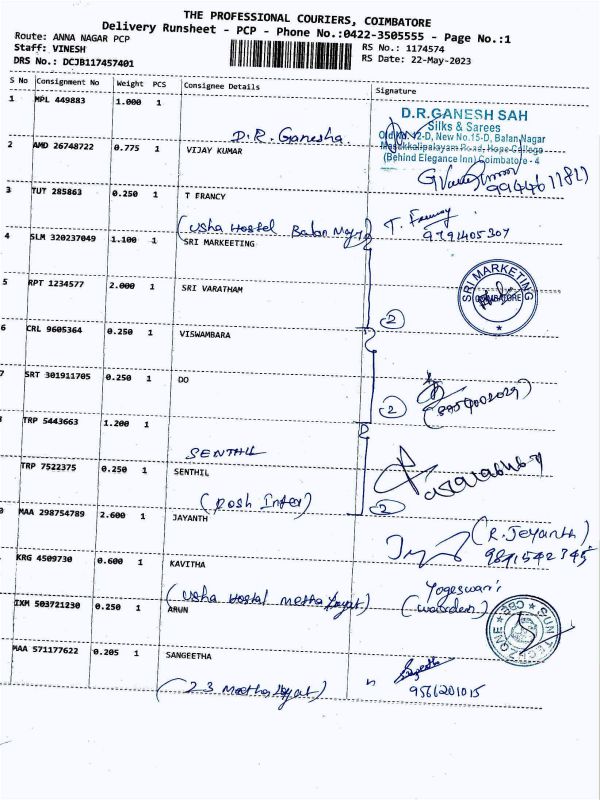 THE PROFESSIONAL COURIERS, COIMBATORE
Delivery Runsheet - PCP - Phone No.:0422-3505555 - Page No.:1
Route: ANNA NAGAR PCP
Staff: VINESH
DRS No.: DCJB117457401
RS No.: 1174574
RS Date: 22-May-2023
S No Consignment No Weight PCS Consignee Details Signature
1 MPL 449883 1.000 1 D.R. Ganesha
D.R.GANESH SAH
Silks & Sarees
Old No.12-D, New No.15-D, Balan Nagar
Masakkalipalayam Road, Hope College
(Behind Elegance Inn) Coimbatore - 4
2 AMD 26748722 0.775 1 VIJAY KUMAR
3 TUT 285863 0.250 1 T FRANCY T. Francy
(Usha Hostel Balan 9791405307
4 SLM 320237049 1.100 1 SRI MARKEETING
SRI MARKETING
COIMBATORE
5 RPT 1234577 2.000 1 SRI VARATHAM
2
6 CRL 9605364 0.250 1 VISWAMBARA
7 SRT 301911705 0.250 1 DO
2
TRP 5443663 1.200 1 SENTHIL
TRP 7522375 0.250 1 SENTHIL
(Dosh Inter) 2
MAA 298754789 2.600 1 JAYANTH (R. Jeyanth)
KRG 4509730 0.600 1 KAVITHA Yogeswari
(Usha Hostal (warden)
IXM 503721230 0.250 1 ARUN
SUN TECH ZONE CBE
MAA 571177622 0.205 1 SANGEETHA Sangeetha
(23 9566201015